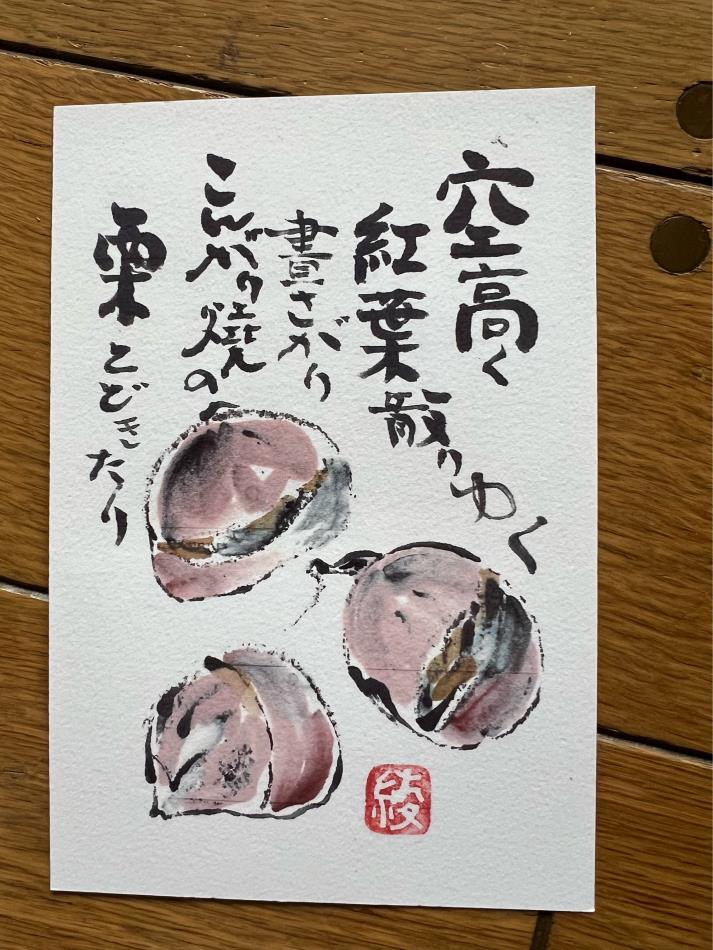 空高く
紅葉散りゆく
晝さがり
こんがり焼の
栗とどきたり
綾